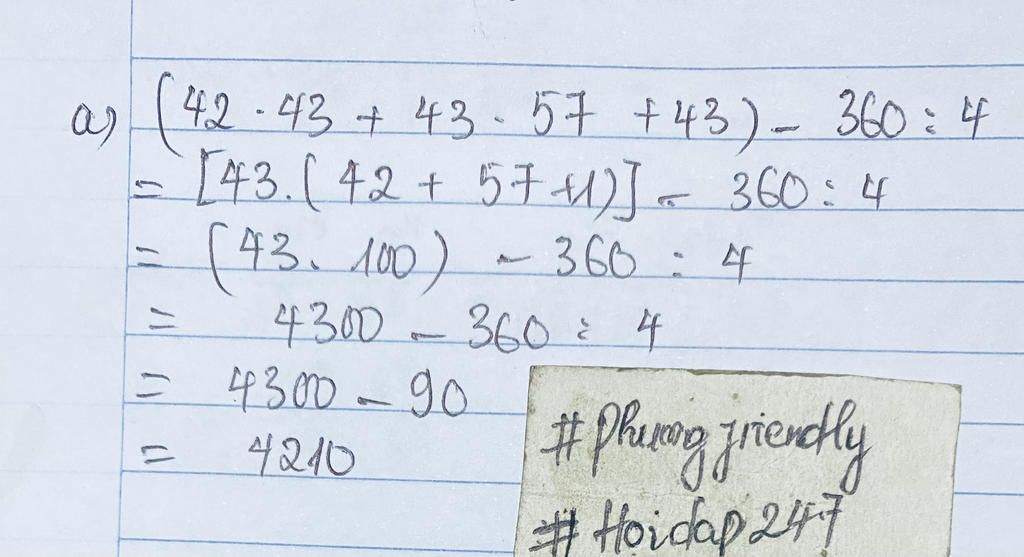 a) (42 . 43 + 43 . 57 + 43) - 360 : 4
= [43.(42 + 57 +1)] - 360 : 4
= (43. 100) - 360 : 4
= 4300 - 360 : 4
= 4300 - 90
= 4210
# Phuong friendly
# Hoidap247